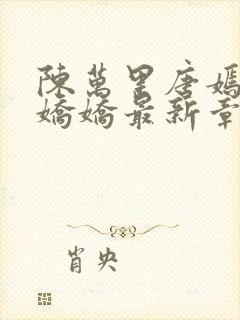 陳萬里唐嫣
嬌嬌最新章
肖央